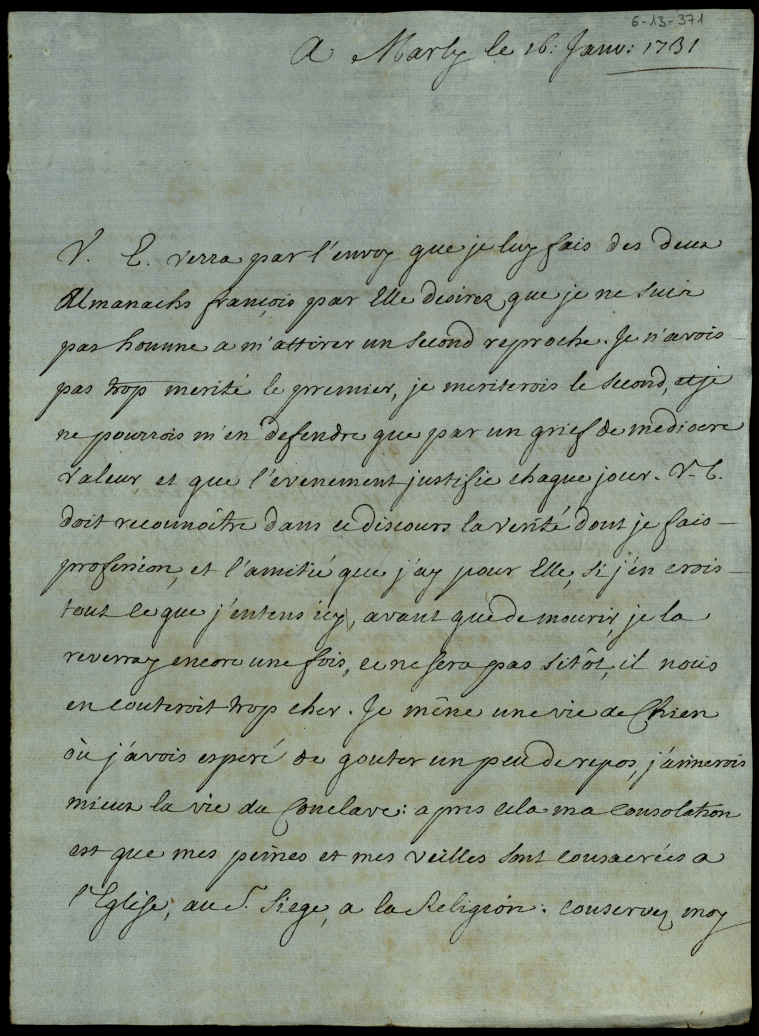 6-13-371
A Marly le 16: Janv: 1731
V. E. verra par l'envoy que je luy fais des deux
Almanachs françois par Elle desirez, que je ne suis
pas homme a m'attirer un second reproche. Je n'avois
pas trop merité le premier, je meriterois le second, et je
ne pourrois m'en defendre que par un grief de mediocre
valeur, et que l'evenement justifie chaque jour. V. E.
doit reconnoitre dans ce discours la verité dont je fais
profession, et l'amitié que j'ay pour Elle, si j'en crois
tout ce que j'entens icy, avant que de mourir, je la
reverray encore une fois, ce ne sera pas sitôt, il nous
en couteroit trop cher. Je mène une vie de Chien
où j'avois esperé de gouter un peu de repos, j'aimerois
mieux la vie du Conclave: apres cela ma consolation
est que mes peines et mes veilles sont consacrées a
l'Eglise, au S. Siege, a la Religion. conservez moy